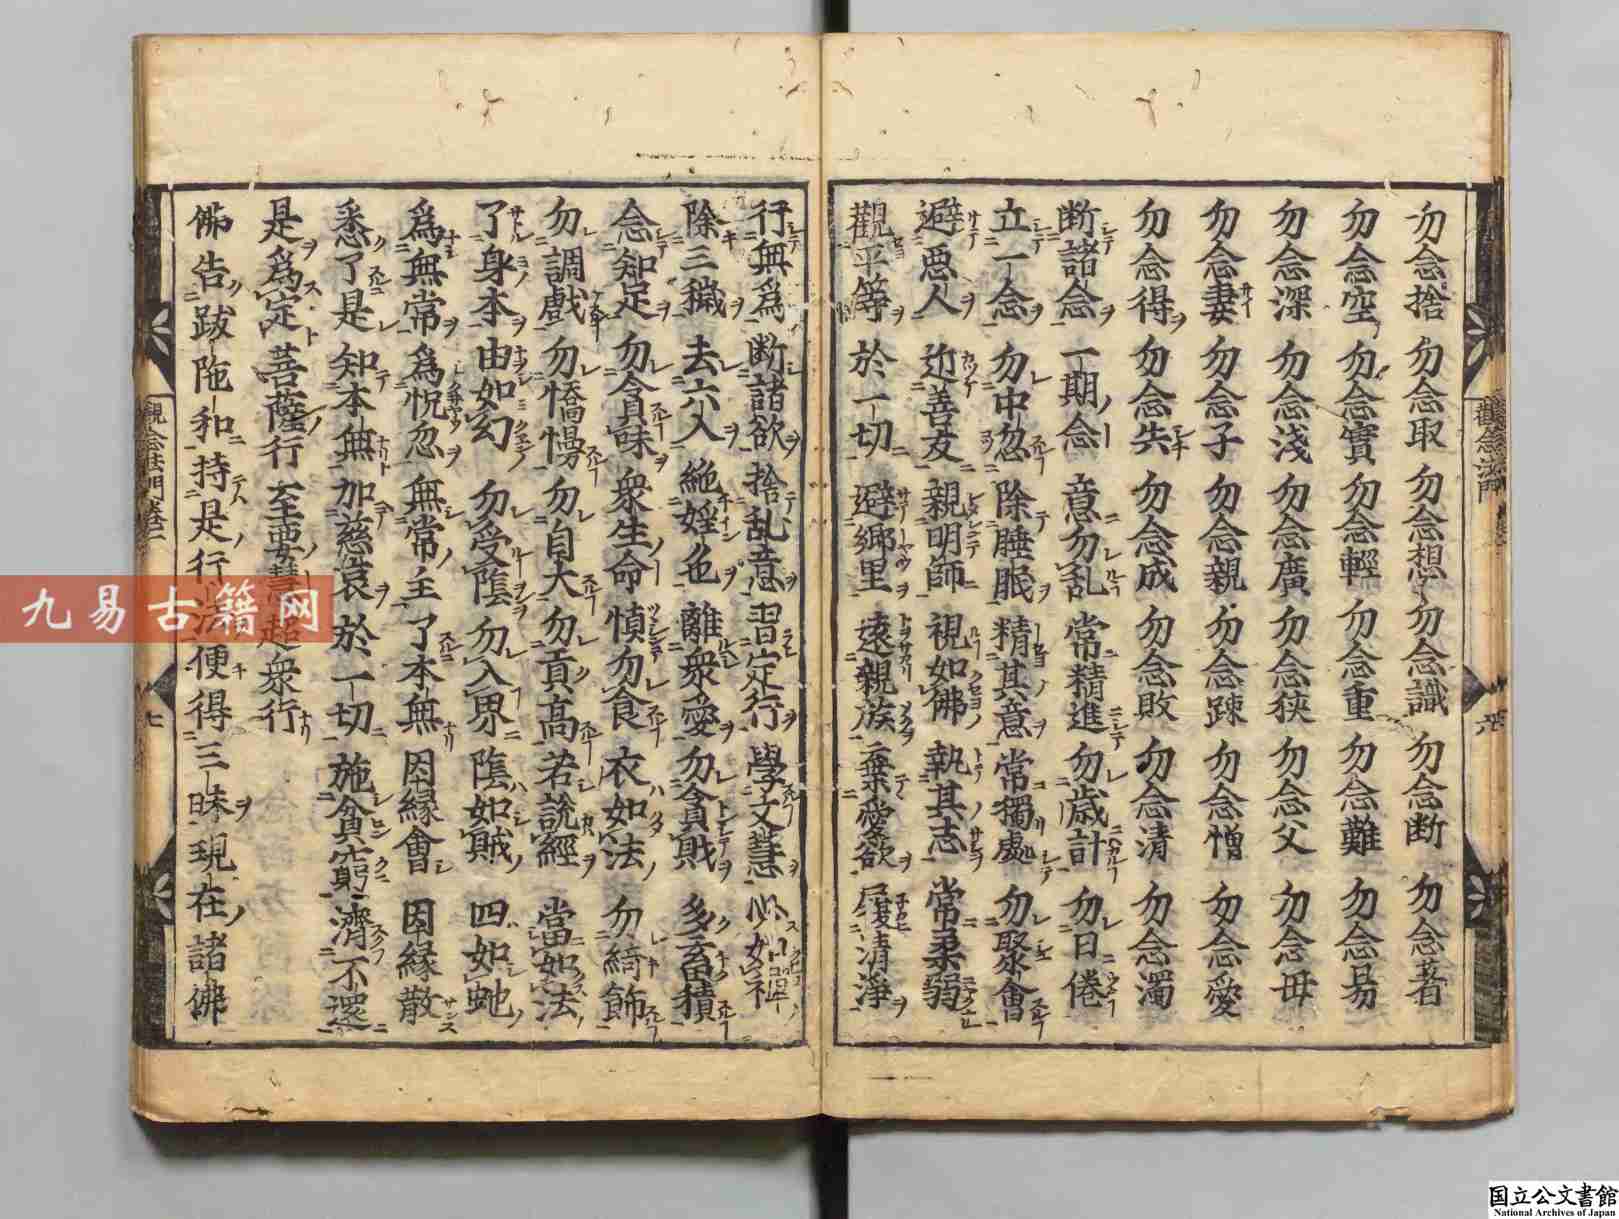 勿念捨 勿念取 勿念想 勿念識 勿念断 勿念著
勿念空 勿念實 勿念輕 勿念重 勿念難 勿念易
勿念深 勿念淺 勿念廣 勿念狹 勿念父 勿念母
勿念妻 勿念子 勿念親 勿念踈 勿念憎 勿念愛
勿念得 勿念失 勿念成 勿念敗 勿念清 勿念濁
断諸念 一期念 意勿乱 常精進 勿歳計 勿日倦
立一念 勿中忽 除睡眠 精其意 常獨處 勿聚會
避悪人 近善友 親明師 視如佛 執其志 常柔弱
觀平等 於一切 避郷里 遠親族 棄愛欲 履清淨
行無爲 断諸欲 捨乱意 習定行 學文慧 必如禅
除三穢 去六入 絶婬色 離衆愛 勿貪財 多畜積
念知足 勿貪味 衆生命 慎勿食 衣如法 勿綺飾
勿調戯 勿憍慢 勿自大 勿貢高 若説經 當如法
了身本 由如幻 勿受陰 勿入界 陰如賊 四如虵
爲無常 爲怳忽 無常主 了本無 因縁會 因縁散
悉了是 知本無 加慈哀 於一切 施貧窮 濟不還
是爲定 菩薩行 至要慧 超衆行
佛告跋陁和持是行法便得三昧現在諸佛
觀念法門
六
七
九易古籍网
国立公文書館
National Archives of Japan